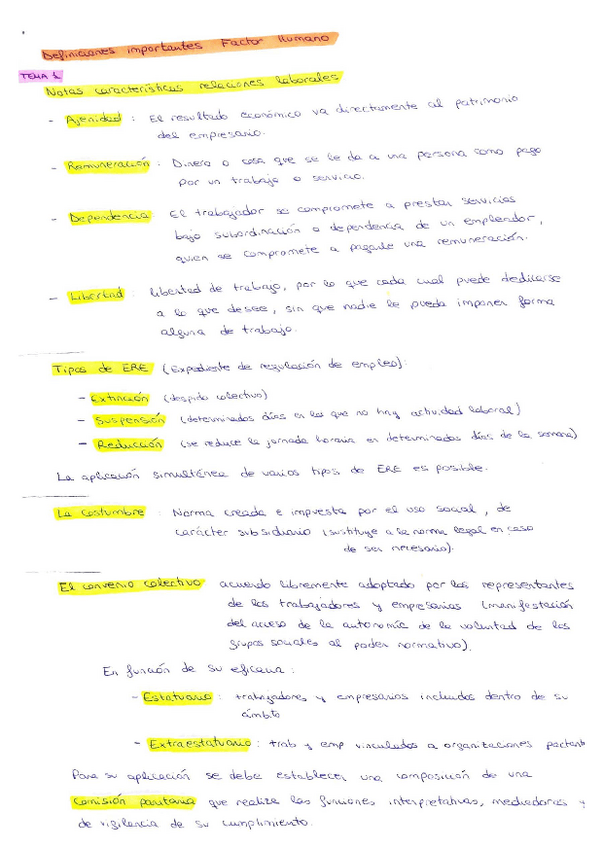 Definiciones importantes Factor Humano
TEMA 1
Notas características relaciones laborales
- Ajenidad : El resultado económico va directamente al patrimonio
del empresario.
- Remuneración : Dinero o cosa que se le da a una persona como pago
por un trabajo o servicio.
- Dependencia : El trabajador se compromete a prestar servicios
bajo subordinación o dependencia de un empleador,
quien se compromete a pagarle una remuneración.
- Libertad : libertad de trabajo, por lo que cada cual puede dedicarse
a lo que desee, sin que nadie le pueda imponer forma
alguna de trabajo.
Tipos de ERE (Expediente de regulación de empleo):
- Extinción (despido colectivo)
- Suspensión (determinados días en los que no hay actividad laboral)
- Reducción (se reduce la jornada horaria en determinados días de la semana)
La aplicación simultánea de varios tipos de ERE es posible.
La costumbre : Norma creada e impuesta por el uso social, de
carácter subsidiario (sustituye a la norma legal en caso
de ser necesario).
El convenio colectivo acuerdo libremente adoptado por los representantes
de los trabajadores y empresarios (manifestación
del acceso de la autonomía de la voluntad de los
grupos sociales al poder normativo).
En función de su eficacia :
- Estatutario : trabajadores y empresarios incluidos dentro de su
ámbito
- Extraestatutario : trab y emp vinculados a organizaciones
Para su aplicación se debe establecer una composición de una
comisión paritaria que realice las funciones interpretativas, mediadoras y
de vigilancia de su cumplimiento.